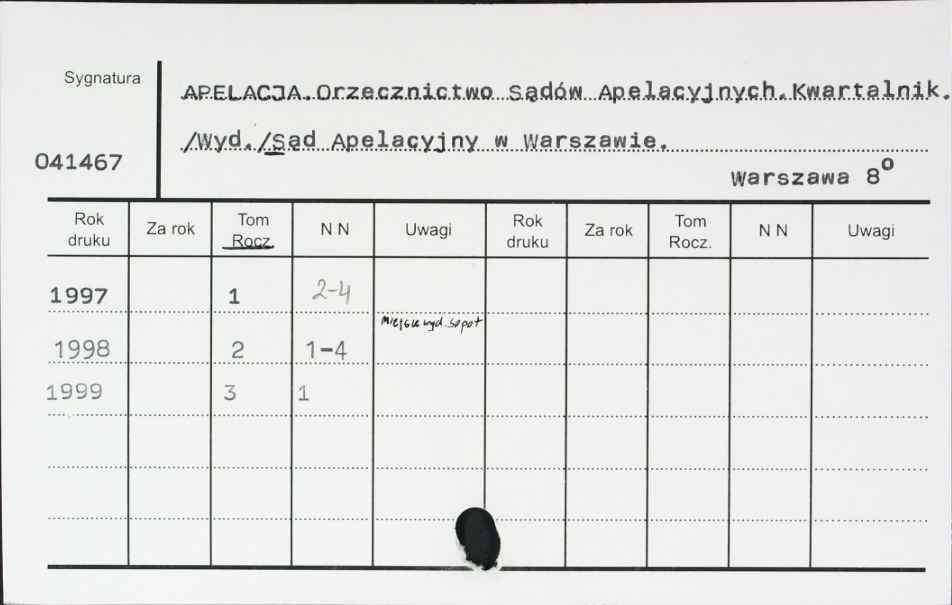 Sygnatura
APELACJA.Orzecznictwo Sądów Apelacyjnych.Kwartalnik.
/Wyd./Sąd Apelacyjny w Warszawie.
041467
Warszawa 8º
Rok druku Za rok Tom Rocz. N N Uwagi Rok druku Za rok Tom Rocz. N N Uwagi
1997 1 2-4
Miejsce wyd. Sopot
1998 2 1-4
1999 3 1